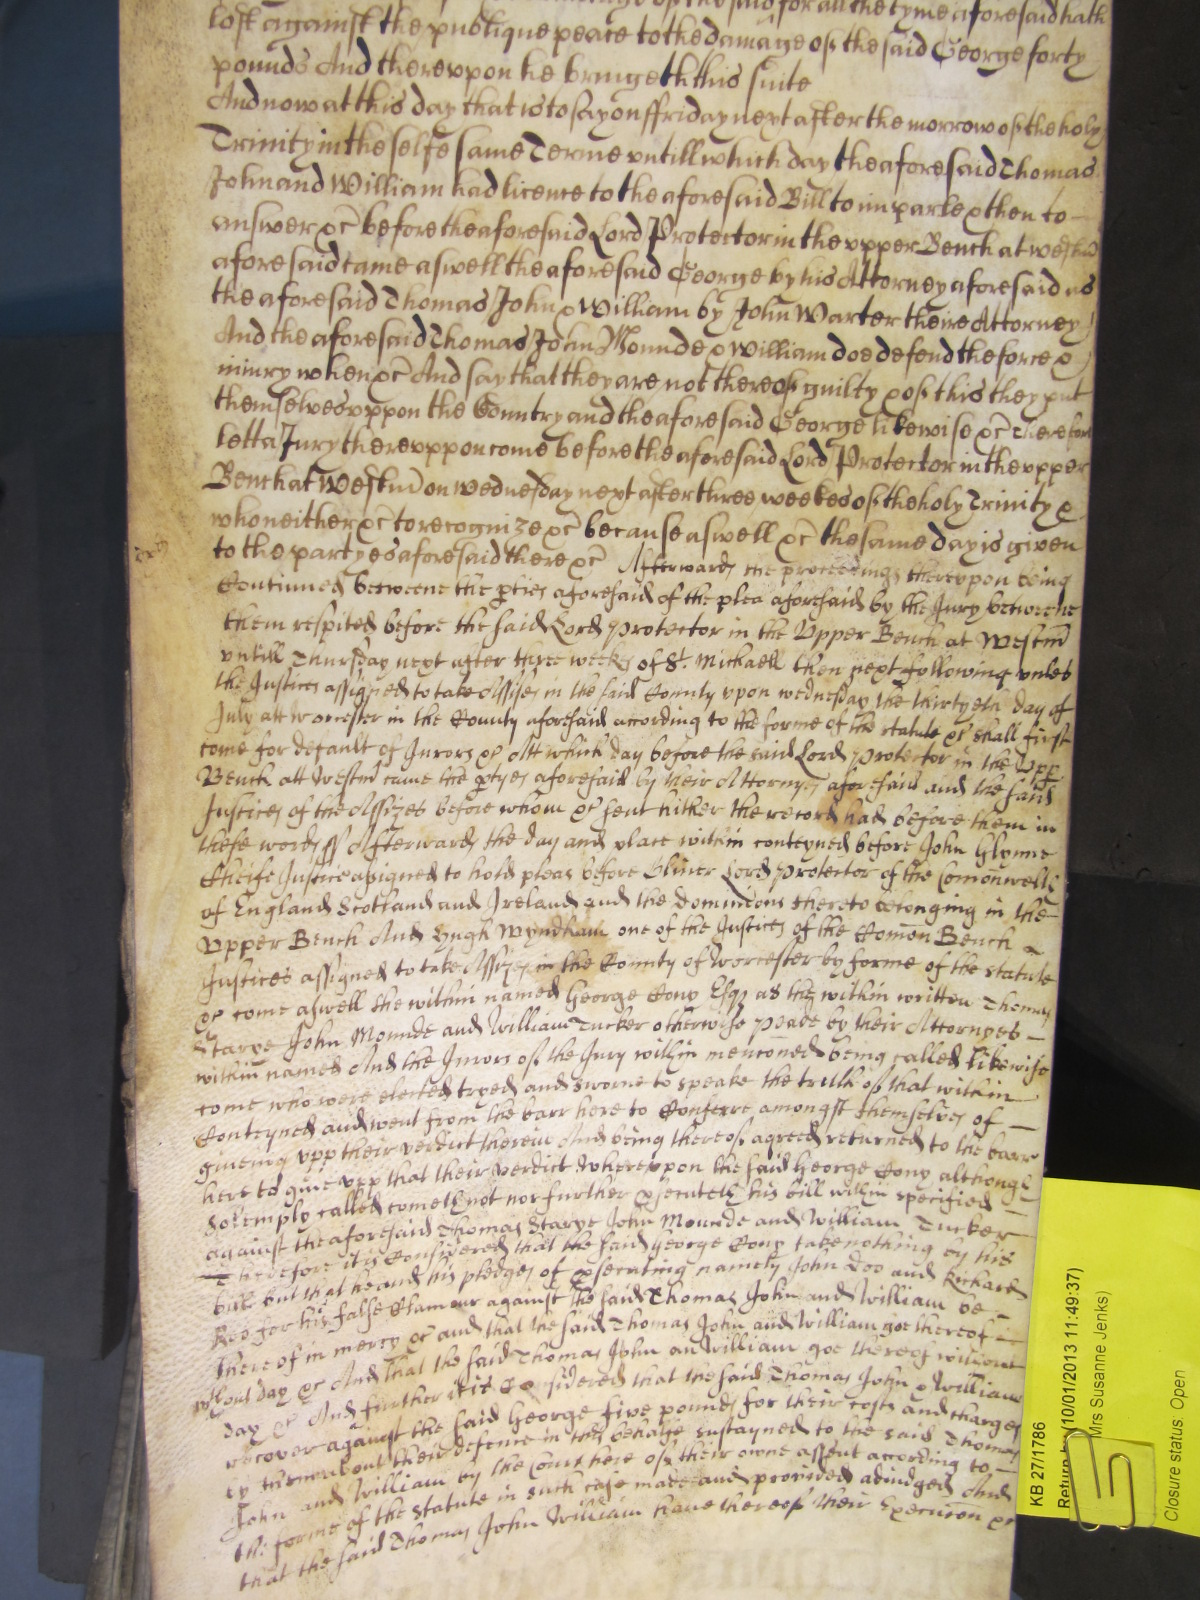 of the said for all the tyme aforesaid hath
lost against the publique peace to the damage of the said George forty
pounds And thereuppon he bringeth this suite
And now at this day that is to say on ffriday next after the morrow of the holy
Trinity in the selfe same Terme untill which day the aforesaid Thomas
John and William had licence to the aforesaid Bill to imparle & then to
answer &c before the aforesaid Lord Protector in the upper Bench at Westm
aforesaid came aswell the aforesaid George by his Attorney aforesaid as
the aforesaid Thomas John & William by John Warter theire Attorney
And the aforesaid Thomas John Mounde & William doe defend the force &
iniury when &c And say that they are not thereof guilty & of this they put
themselves uppon the Country and the aforesaid George likewise &c therefore
lett a Jury thereuppon come before the aforesaid Lord Protector in the upper
Bench at Westm on Wednesday next after three weekes of the holy Trinity &
who neither &c to recognize &c because aswell &c the same day is given
to the partyes aforesaid there &c Afterwards the proceedings thereupon being
Continued betweene the pties aforesaid of the plea aforesaid by the Jury betweene
them respited before the said Lord Protector in the Upper Bench at Westm
untill Thursday next after three weeks of St. Michaell then next following unles
the Justices assigned to take Assises in the said County upon wednesday the thirtyeth day of
July att Worcester in the County aforesaid according to the forme of the statute &c shall first
come for default of Jurors &c Att which day before the said Lord Protector in the Upp
Bench att Westm came the ptyes aforesaid by their Attornyes aforesaid and the said
Justices of the Assizes before whom &c sent hither the record had before them in
these words ss Afterwards the day and place within conteyned before John Glynne
Cheife Justice assigned to hold pleas before Oliver Lord Protector of the Comonwelth
of England Scotland and Ireland and the Dominions thereto belonging in the
Upper Bench And Hugh Wyndham one of the Justices of the Comon Bench
Justices assigned to take Assizes in the County of Worcester by forme of the statute
&c come aswell the within named George Cony Esq as the within written Thomas
Starye John Mounde and William Tucker otherwise Peade by their Attornyes
within named And the Jurors of the Jury within mencioned being called likewise
come who were elected tryed and sworne to speake the truth of that within
Conteyned and went from the barr here to Conferre amongst themselves of
giveing upp their verdict therein And being thereof agreed returned to the barr
here to give upp that their verdict Whereupon the said George Cony although
Solemply called cometh not nor further psecuteth his bill within specified
against the aforesaid Thomas Starye John Mounde and William Tucker
Therefore it is Considered that the said George Cony take nothing by his
bill but that he and his pledges of psecuting namely John Doo and Richard
Roo for his false Clamour against the said Thomas John and William be
there of in mercy &c and that the said Thomas John and William goe thereof
wthout day &c And that the said Thomas John an William goe thereof without
day &c And further it is Considered that the said Thomas John & William
recover against the said George five pounds for their costs and charges
by them about their defence in this behalfe sustayned to the said Thomas
John and William by the Court here of their owne assent according to
the forme of the Statute in such case made and provided adiudged And
that the said Thomas John William have thereof their Execucion &c
KB 27/1786
(10/01/2013 11:49:37)
Mrs Susanne Jenks)
Closure status: Open